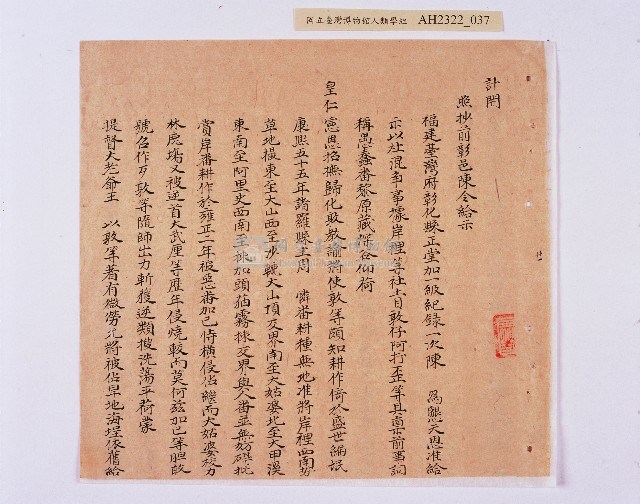 國立臺灣博物館人類學組 AH2322_037
計開
照抄前彰邑陳令給示
福建臺灣府彰化縣正堂加一級紀錄一次陳 為懇天恩准給
示以杜混爭事據岸裡等社土目敦仔阿打歪等具稟前事詞
稱愚蠢番黎原藏深谷仰荷
皇仁憲恩招撫歸化設教諭將使敦等頗知耕作倚於盛世編氓
康熙五十五年諸羅縣主周 憐番耕種無地准將岸裡西南勢
草地擬東至大山西至沙轆大山頂交界南至大姑婆北至大甲溪
東南至阿里史西南至揀加頭貓霧揀交界與人番並無妨碍批
賞岸番耕作於雍正二年被惡番加己恃橫侵佔緣南大姑婆
林尾塲又被逆首大武厘等歷年侵燒較南莫何茲加己等胆敢
號召作歹敦等隨師出力斬獲逆類搜洗蕩平荷蒙
提督大老爺王 以敦等着有微勞允將被佔旱地海埕依舊給